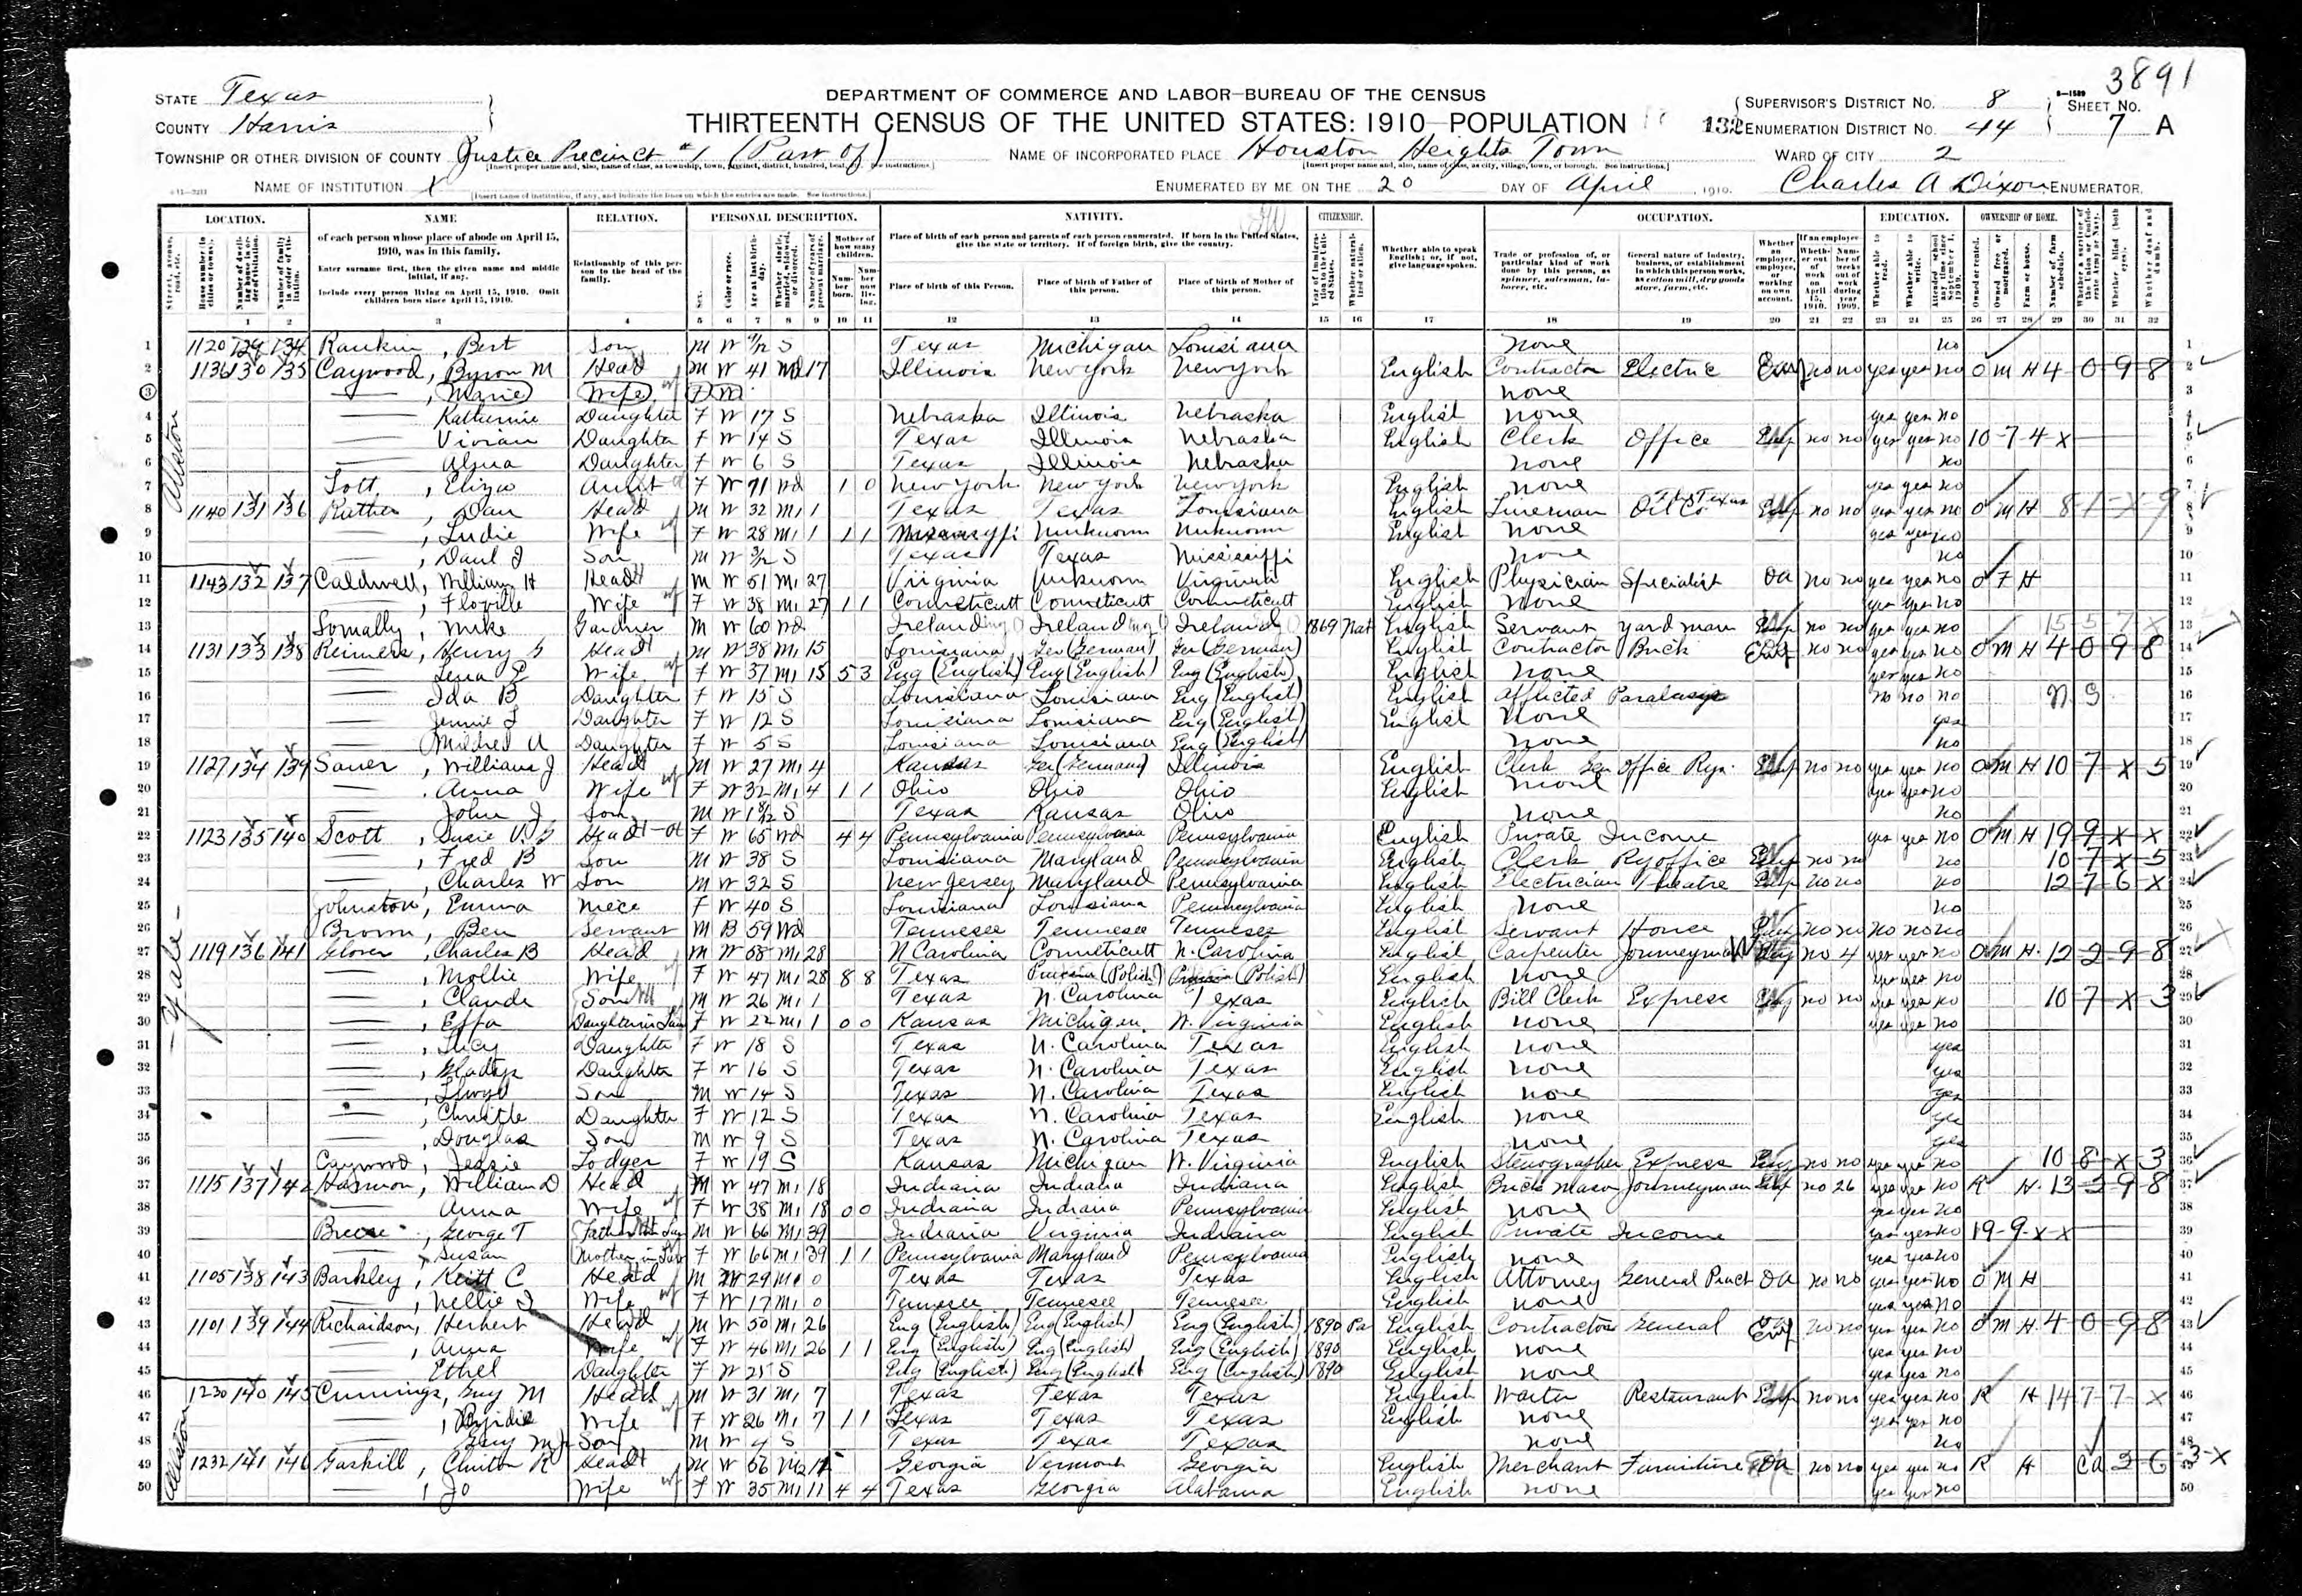 3891
STATE Texas
COUNTY Harris
DEPARTMENT OF COMMERCE AND LABOR—BUREAU OF THE CENSUS
THIRTEENTH CENSUS OF THE UNITED STATES: 1910—POPULATION
SUPERVISOR'S DISTRICT No. 8
ENUMERATION DISTRICT No. 44
132
SHEET No. 7 A
TOWNSHIP OR OTHER DIVISION OF COUNTY Justice Precinct #1 (Part of)
NAME OF INCORPORATED PLACE Houston Heights Town
WARD OF CITY 2
NAME OF INSTITUTION X
ENUMERATED BY ME ON THE 20 DAY OF April, 1910. Charles A Dixon, ENUMERATOR.
LOCATION. NAME RELATION. PERSONAL DESCRIPTION. NATIVITY. CITIZENSHIP. OCCUPATION. EDUCATION. OWNERSHIP OF HOME.
of each person whose place of abode on April 15, 1910, was in this family.
Enter surname first, then the given name and middle initial, if any.
Include every person living on April 15, 1910. Omit children born since April 15, 1910.
Relationship of this person to the head of the family.
Place of birth of each person and parents of each person enumerated. If born in the United States, give the state or territory. If of foreign birth, give the country.
Place of birth of this Person. Place of birth of Father of this person. Place of birth of Mother of this person.
Whether able to speak English; or, if not, give language spoken.
1 2 3 4 5 6 7 8 9 10 11 12 13 14 15 16 17 18 19 20 21 22 23 24 25 26 27 28 29 30 31 32
1 1120 129 134 Rankin, Bert Son M W S Texas Michigan Louisiana none no
2 1136 130 135 Caywood, Byron M Head M W 41 Md 17 Illinois New York New York English Contractor Electric Emp no no yes yes no O M H 4 0 9 8
3 —, Marie Wife none
4 — Katherine Daughter F W 17 S Nebraska Illinois Nebraska English none yes yes no
5 — Vivian Daughter F W 14 S Texas Illinois Nebraska English Clerk Office Emp no no yes yes no 10-7-4-X
6 — Daughter F W 6 S Texas Illinois Nebraska none no
7 Lott, Eliza Aunt F W 71 Wd 1 0 New York New York New York English none yes yes no
8 1140 131 136 Head M W 32 M1 1 Texas Texas Louisiana English Lineman The Texas Oil Co no no yes yes no O M H 8-1-X-9
9 —, Ludie Wife F W 28 M1 1 1 1 Mississippi Unknown Unknown English none yes yes no
10 —, Son M W 3/12 S Texas Texas Mississippi none no
11 1143 132 137 Caldwell, William H Head M W 51 M1 27 Virginia Unknown Virginia English Physician Specialist OA no no yes yes no O F H
12 —, Floville Wife F W 38 M1 27 1 1 Conneticutt Conneticutt Conneticutt English none yes yes no
13 Mike Gardner M W 60 Wd Ireland Ireland Ireland 1869 Nat English Servant yard man no no yes yes no 15-5-7-X
14 1131 133 138 Reimers, Henry G Head M W 38 M1 15 Louisiana Ger (German) Ger (German) English Contractor Brick no no yes yes no O M H 4 0 9 8
15 — Lena E Wife F W 37 M1 15 5 3 Eng (English) Eng (English) Eng (English) English none yes yes no
16 — Ida B Daughter F W 15 S Louisiana Louisiana Eng (English) English Afflicted Paralasys no no no N G
17 — Jennie L Daughter F W 12 S Louisiana Louisiana Eng (English) English none yes
18 — Mildred A Daughter F W 5 S Louisiana Louisiana Eng (English) none no
19 1127 134 139 Sauer, William J Head M W 27 M1 4 Kansas Ger (German) Illinois English Clerk Gen Office Rys. no no yes yes no O M H 10 7 X 5
20 —, Anna Wife F W 32 M1 4 1 1 Ohio Ohio Ohio English none yes yes no
21 — John J Son M W S Texas Kansas Ohio none no
22 1123 135 140 Scott, Susie V. Head F W 65 Wd 4 4 Pennsylvania Pennsylvania Pennsylvania English Private Income yes yes no O M H 19 9 X X
23 —, Fred B Son M W 38 S Louisiana Maryland Pennsylvania English Clerk Ry office no no no 10 7 X 5
24 —, Charles W Son M W 32 S New Jersey Maryland Pennsylvania English Electrician Theatre no no no 12 7 6 X
25 Johnston, Emma Niece F W 40 S Louisiana Louisiana Pennsylvania English none no
26 Brown, Ben Servant M B 59 Wd Tennesee Tennesee Tennesee English Servant House no no no no no
27 1119 136 141 Glover, Charles B Head M W 58 M1 28 N Carolina Conneticutt N. Carolina English Carpenter Journeyman W no 4 yes yes no O M H 12 2 9 8
28 —, Mollie Wife F W 47 M1 28 8 8 Texas (Polish) (Polish) English none yes yes no
29 —, Claude Son M W 26 M1 1 Texas N. Carolina Texas English Bill Clerk Express no no yes yes no 10 7 X 3
30 —, Effa Daughter in Law F W 22 M1 1 0 0 Kansas Michigan W. Virginia English none yes yes no
31 —, Lucy Daughter F W 18 S Texas N. Carolina Texas English none yes
32 —, Gladys Daughter F W 16 S Texas N. Carolina Texas English none yes
33 —, Lloyd Son M W 14 S Texas N. Carolina Texas English none yes
34 —, Daughter F W 12 S Texas N. Carolina Texas English none yes
35 —, Douglas Son M W 9 S Texas N. Carolina Texas none yes
36 Caywood, Jessie Lodger F W 19 S Kansas Michigan W. Virginia English Stenographer Express no no yes yes no 10 8 X 3
37 1115 137 142 Harmon, William D Head M W 47 M1 18 Indiana Indiana Indiana English Brick Mason Journeyman no 26 yes yes no R H 13 2 9 8
38 — Anna Wife F W 38 M1 18 0 0 Indiana Indiana Pennsylvania English none yes yes no
39 George T Father in Law M W 66 M1 39 Indiana Virginia Indiana English Private Income yes yes no 19-9-X-X
40 — Susan Mother in Law F W 66 M1 39 1 1 Pennsylvania Maryland Pennsylvania English none yes yes no
41 1105 138 143 Barkley, Keitt C Head M W 29 M1 0 Texas Texas Texas English Attorney General Pract OA no no yes yes no O M H
42 —, Nellie Wife F W 17 M1 0 Tennesee Tennesee Tennesee English none yes yes no
43 1101 139 144 Richardson, Herbert Head M W 50 M1 26 Eng (English) Eng (English) Eng (English) 1890 Pa English Contractor General no no yes yes no O M H 4 0 9 8
44 —, Anna Wife F W 46 M1 26 1 1 Eng (English) Eng (English) Eng (English) 1890 English none yes yes no
45 Ethel Daughter F W 25 S Eng (English) Eng (English) Eng (English) 1890 English none yes yes no
46 1230 140 145 Cummings, Guy M Head M W 31 M1 7 Texas Texas Texas English Waiter Restaurant no no yes yes no R H 14 7 7 X
47 —, Wife F W 26 M1 7 1 1 Texas Texas Texas English none yes yes no
48 — Guy M Jr Son M W 4 S Texas Texas Texas none no
49 1232 141 146 Gaskill, Clinton R Head M W 56 M2 Georgia Vermont Georgia English Merchant Furniture OA no no yes yes no R H Ca 2 6 3-X
50 —, Jo Wife F W 35 M1 11 4 4 Texas Georgia Alabama English none yes yes no
Allston
Yale
Allston